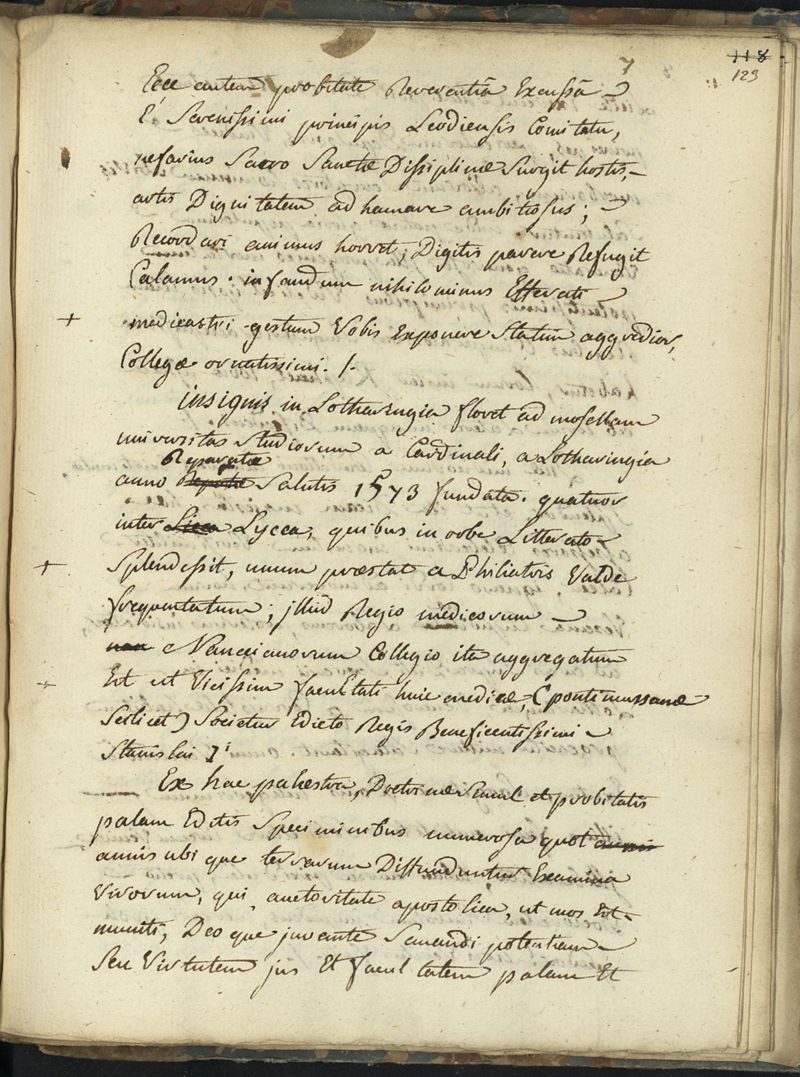 7
118
123
Ecce autem probitate Reverentiâ Excussâ
E Serenissimi principis Leodiensis Comitatu,
nefarius Sacro Sanctæ Dissiplinæ Surgit hostis
artis Dignitatem adhamare ambitiosus;
Recordari animus horret, Digitis parere Refugit
Calamus. infandum nihilominus Efferati
medicastri gestum Vobis Exponere Statim aggredior,
Collegæ ornatissimi. /.
insignis in Lotharengia floret ad mosellam
universitas studiorum a Cardinali, a Lotharingia
Reparatæ
anno Salutis 1573 fundata. quatuor
inter Lycea, quibus in orbe Litterato
Splendessit, unum præstat a Philiatris Valde
frequentatum; illud Regio medicorum
Nanceianorum Collegio ita aggregatum
Est ut Vicissim facultati huic medicæ, (pontimussanæ
Scilicet) Societur Edicto Regis Beneficentissimi
Stanislai
Ex hac palæstra, Doctrinæ Simul et probitatis
palam Editis Speciminibus numerosa quot annis
annis ubi que terrarum Diffunduntur Examina
Virorum, qui auctoritate apostolica, ut mos Est
muniti, Deo que juvante Sanandi potentiam
Seu Virtutem jus Et facultatem palam Et